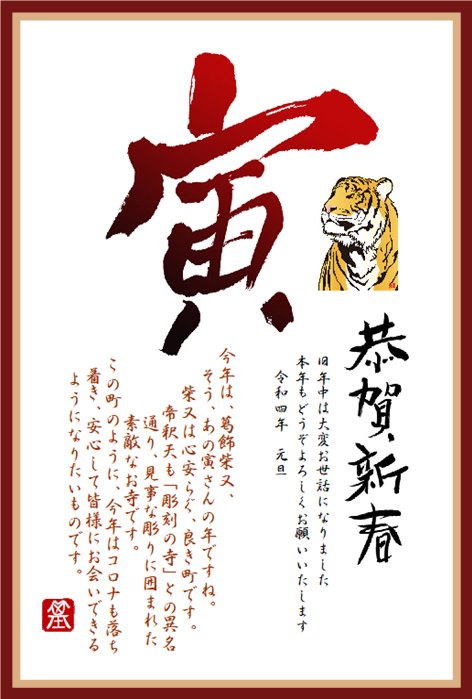 寅
恭賀新春
旧年中は大変お世話になりました
本年もどうぞよろしくお願いいたします
令和四年 元旦
今年は、葛飾柴又、
そう、あの寅さんの年ですね。
柴又は心安らぐ、良き町です。
帝釈天も「彫刻の寺」との異名
通り、見事な彫りに囲まれた
素敵なお寺です。
この町のように、今年はコロナも落ち
着き、安心して皆様にお会いできる
ようになりたいものです。